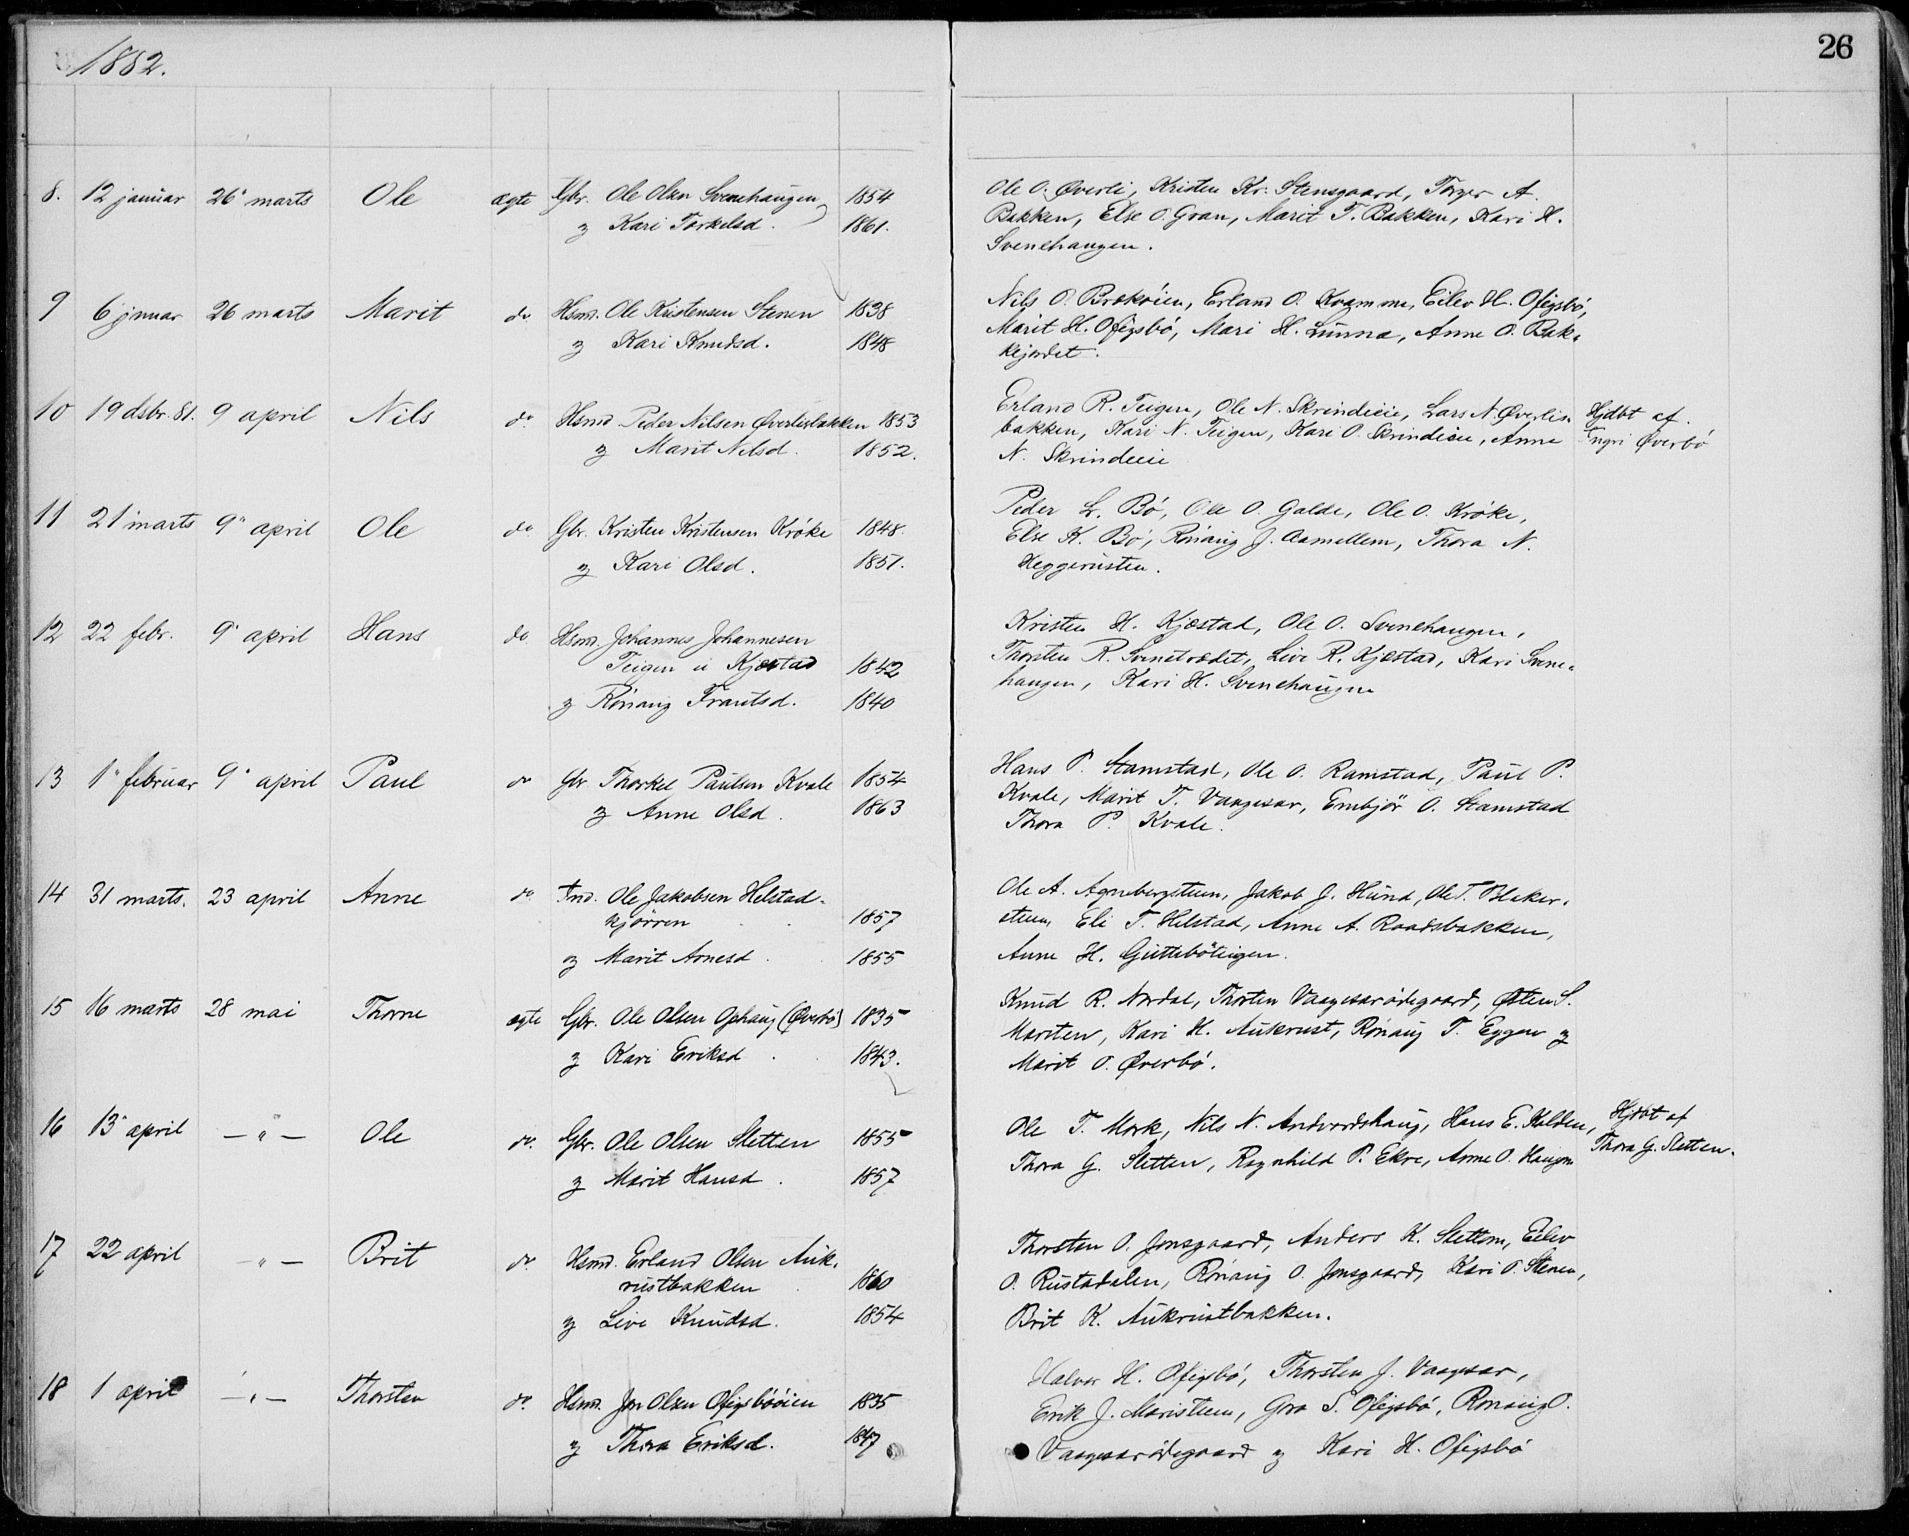 1882.
26
8. 12 januar 26 marts Ole ægte Gbr. Ole Olsen Svenehaugen 1854
og Kari Torkelsd. 1861.
Ole O. Øverli, Kristen Kr. Stensgaard, Torger A.
Bakken, Else O. Gran, Marit T. Bakken, Kari H.
Svenehaugen.
9 6 januar 26 marts Marit do. Hsmd. Ole Kristensen Stenen 1838
og Kari Knudsd. 1848
Nils O. Brokøien, Erland O. Kvamme, Eilev H. Ofigsbó,
Marit H. Ofigsbó, Mari H. Lunna, Anne O. Bak-
kejordet.
10 19 dsbr. 81. 9 april Nils do. Hsmd Peder Nilsen Øverlisbakken 1853
og Marit Nilsd. 1852.
Erland R. Teigen, Ole N. Skrindeeie, Lars N. Øverlis-
bakken, Kari N. Teigen, Kari O. Skrindeeie, Anne
N. Skrindeeie
Hjdbt af
Ingri Øverbó
11 21 marts 9 april Ole do Gbr. Kristen Kristensen Krøke 1848.
og Kari Olsd. 1851.
Peder L. Bó, Ole O. Galde, Ole O. Krøke,
Else K. Bó, Rónaug J. Aamellem, Thora N.
Heggerusten.
12 22 febr. 9 april Hans do Hsmd. Johannes Johannesen
Teigen u Kjæstad 1842
og Rónaug Frantsd. 1840
Kristen H. Kjæstad, Ole O. Svenehaugen,
Thorsten R. Svenetrædet, Live R. Kjæstad, Kari Svene-
haugen, Kari H. Svenehaugen
13 1 februar 9 april Paul do Gbr Thorkel Paulsen Kvale 1854
og Anne Olsd. 1863
Hans P. Stamstad, Ole O. Ramstad, Paul P.
Kvale, Marit T. Vaagesar, Embjør O. Stamstad
Thora P. Kvale.
14 31 marts. 23 april Anne do Ind. Ole Jakobsen Helstad-
kjørren 1857
og Marit Arnesd. 1855
Ole A. Agnebergsteen, Jakob J. Hund, Ole T. Bleker-
steen, Eli T. Helstad, Anne A. Raadsbakken,
Anne H. Guttebøteigen.
15 16 marts 28 mai Thorne ægte Gbr. Ole Olsen Ophaug (Øverbó) 1835
og Kari Eriksd. 1843.
Knud R. Nordal, Thorten Vaagesarødegaard, Østen S.
Marsten, Kari H. Aukrust, Rónaug T. Eggen og
Marit O. Øverbó.
16 13 april — " — Ole do. Gbr. Ole Olsen Sletten 1855
og Marit Hansd. 1857
Ole T. Mork, Nils N. Andvordshaug, Hans E. Kolden,
Thora G. Sletten, Ragnhild P. Ekre, Anne O. Haugen
Hjdbt af
Thora G. Sletten.
17 22 april — " — Brit do. Hsmd. Erland Olsen Auk-
rustbakken 1860
og Live Knudsd. 1854
Thorsten O. Jonsgaard, Anders K. Slettom, Eilev
O. Rustadalen, Rónaug O. Jonsgaard, Kari O. Stenen,
Brit K. Aukrustbakken.
18 1 april — " — Thorsten do. Hsmd. Jon Olsen Ofigsbóøien 1835
og Thora Eriksd. 1847
Halvor H. Ofigsbó, Thorsten J. Vaagesar,
Erik J. Maristuen, Gro S. Ofigsbó, Rónaug O.
Vaagesarødegaard og Kari H. Ofigsbó